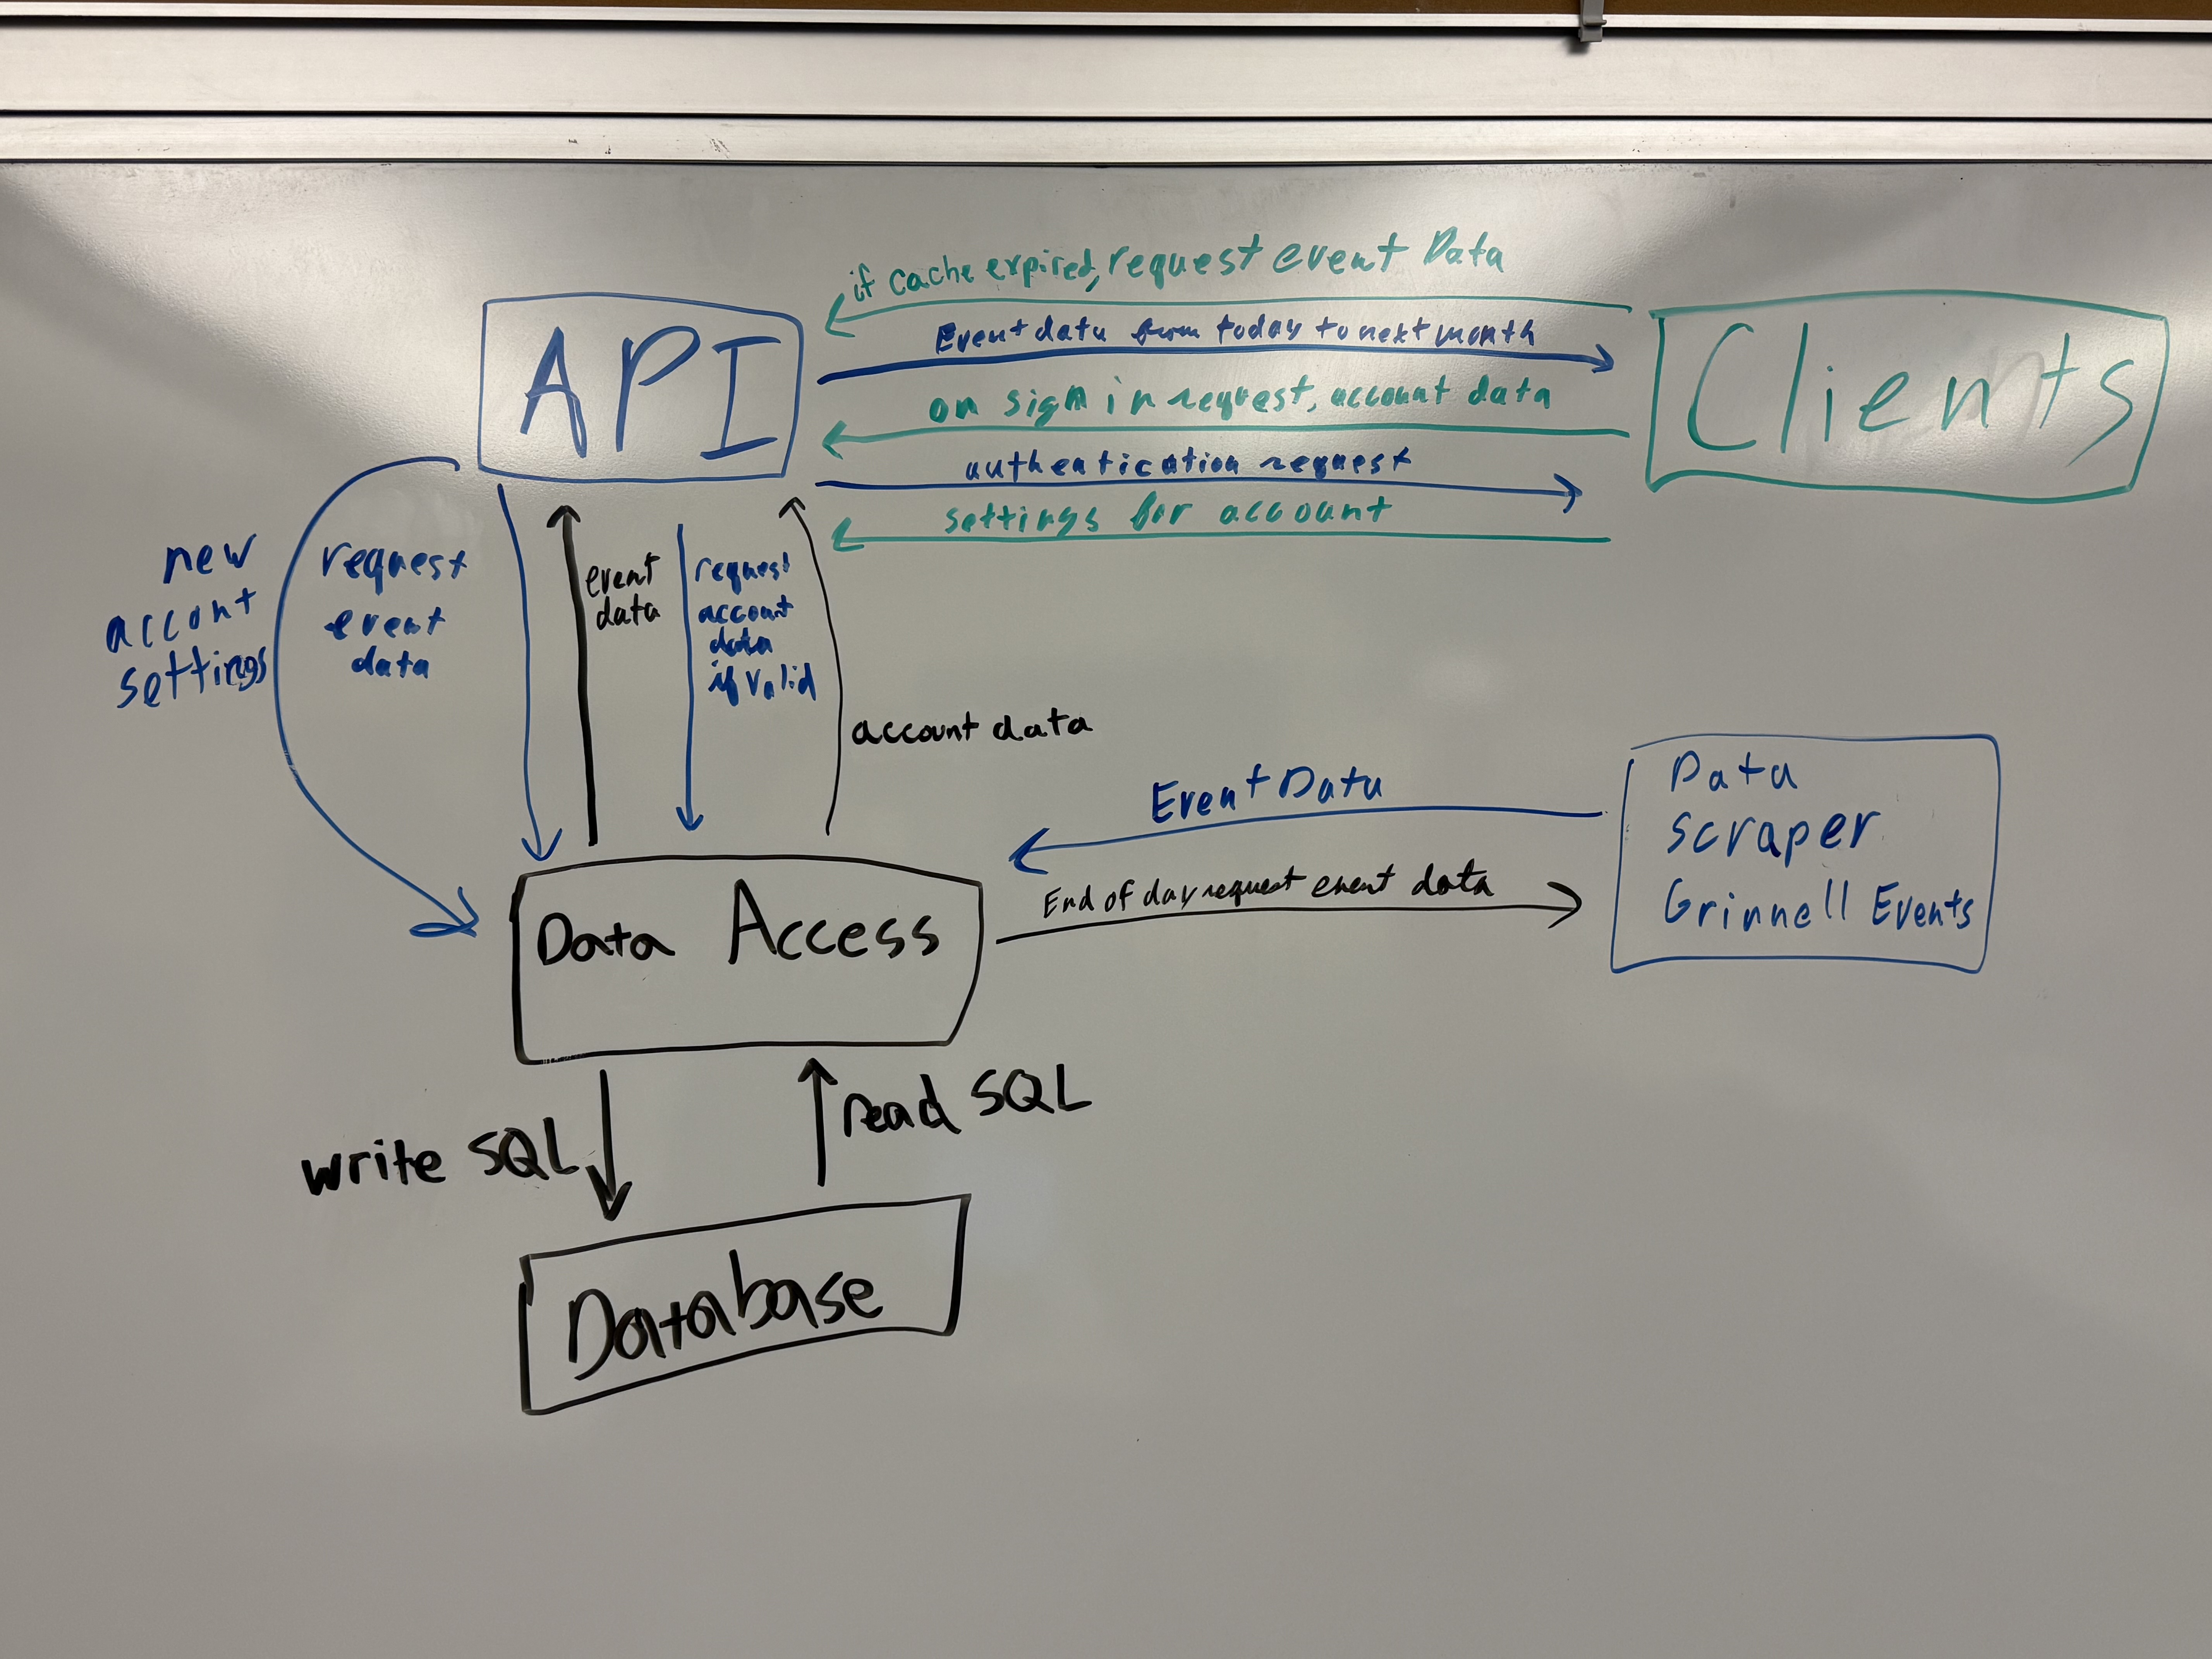 if cache expired, request event Data
Event data from today to next month
on sign in request, account data
authentication request
settings for account
API
Clients
new
accont
settings
request
event
data
event
data
request
account
data
if valid
account data
Event Data
End of day request event data
Data
scraper
Grinnell Events
Data Access
write SQL
read SQL
Database